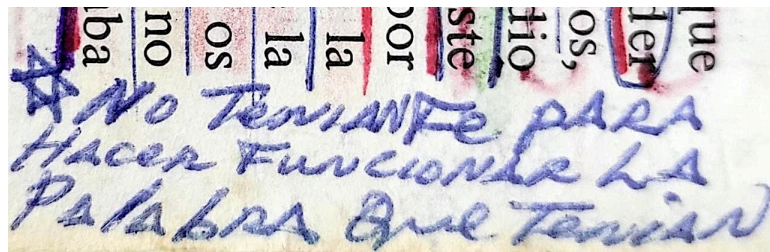 aba
no
os
la
la
por
ste
dio
os,
der
que
☆ No TENIAN Fe pARA
HACER FUNCIONAR LA
PalabRA Que Tenian